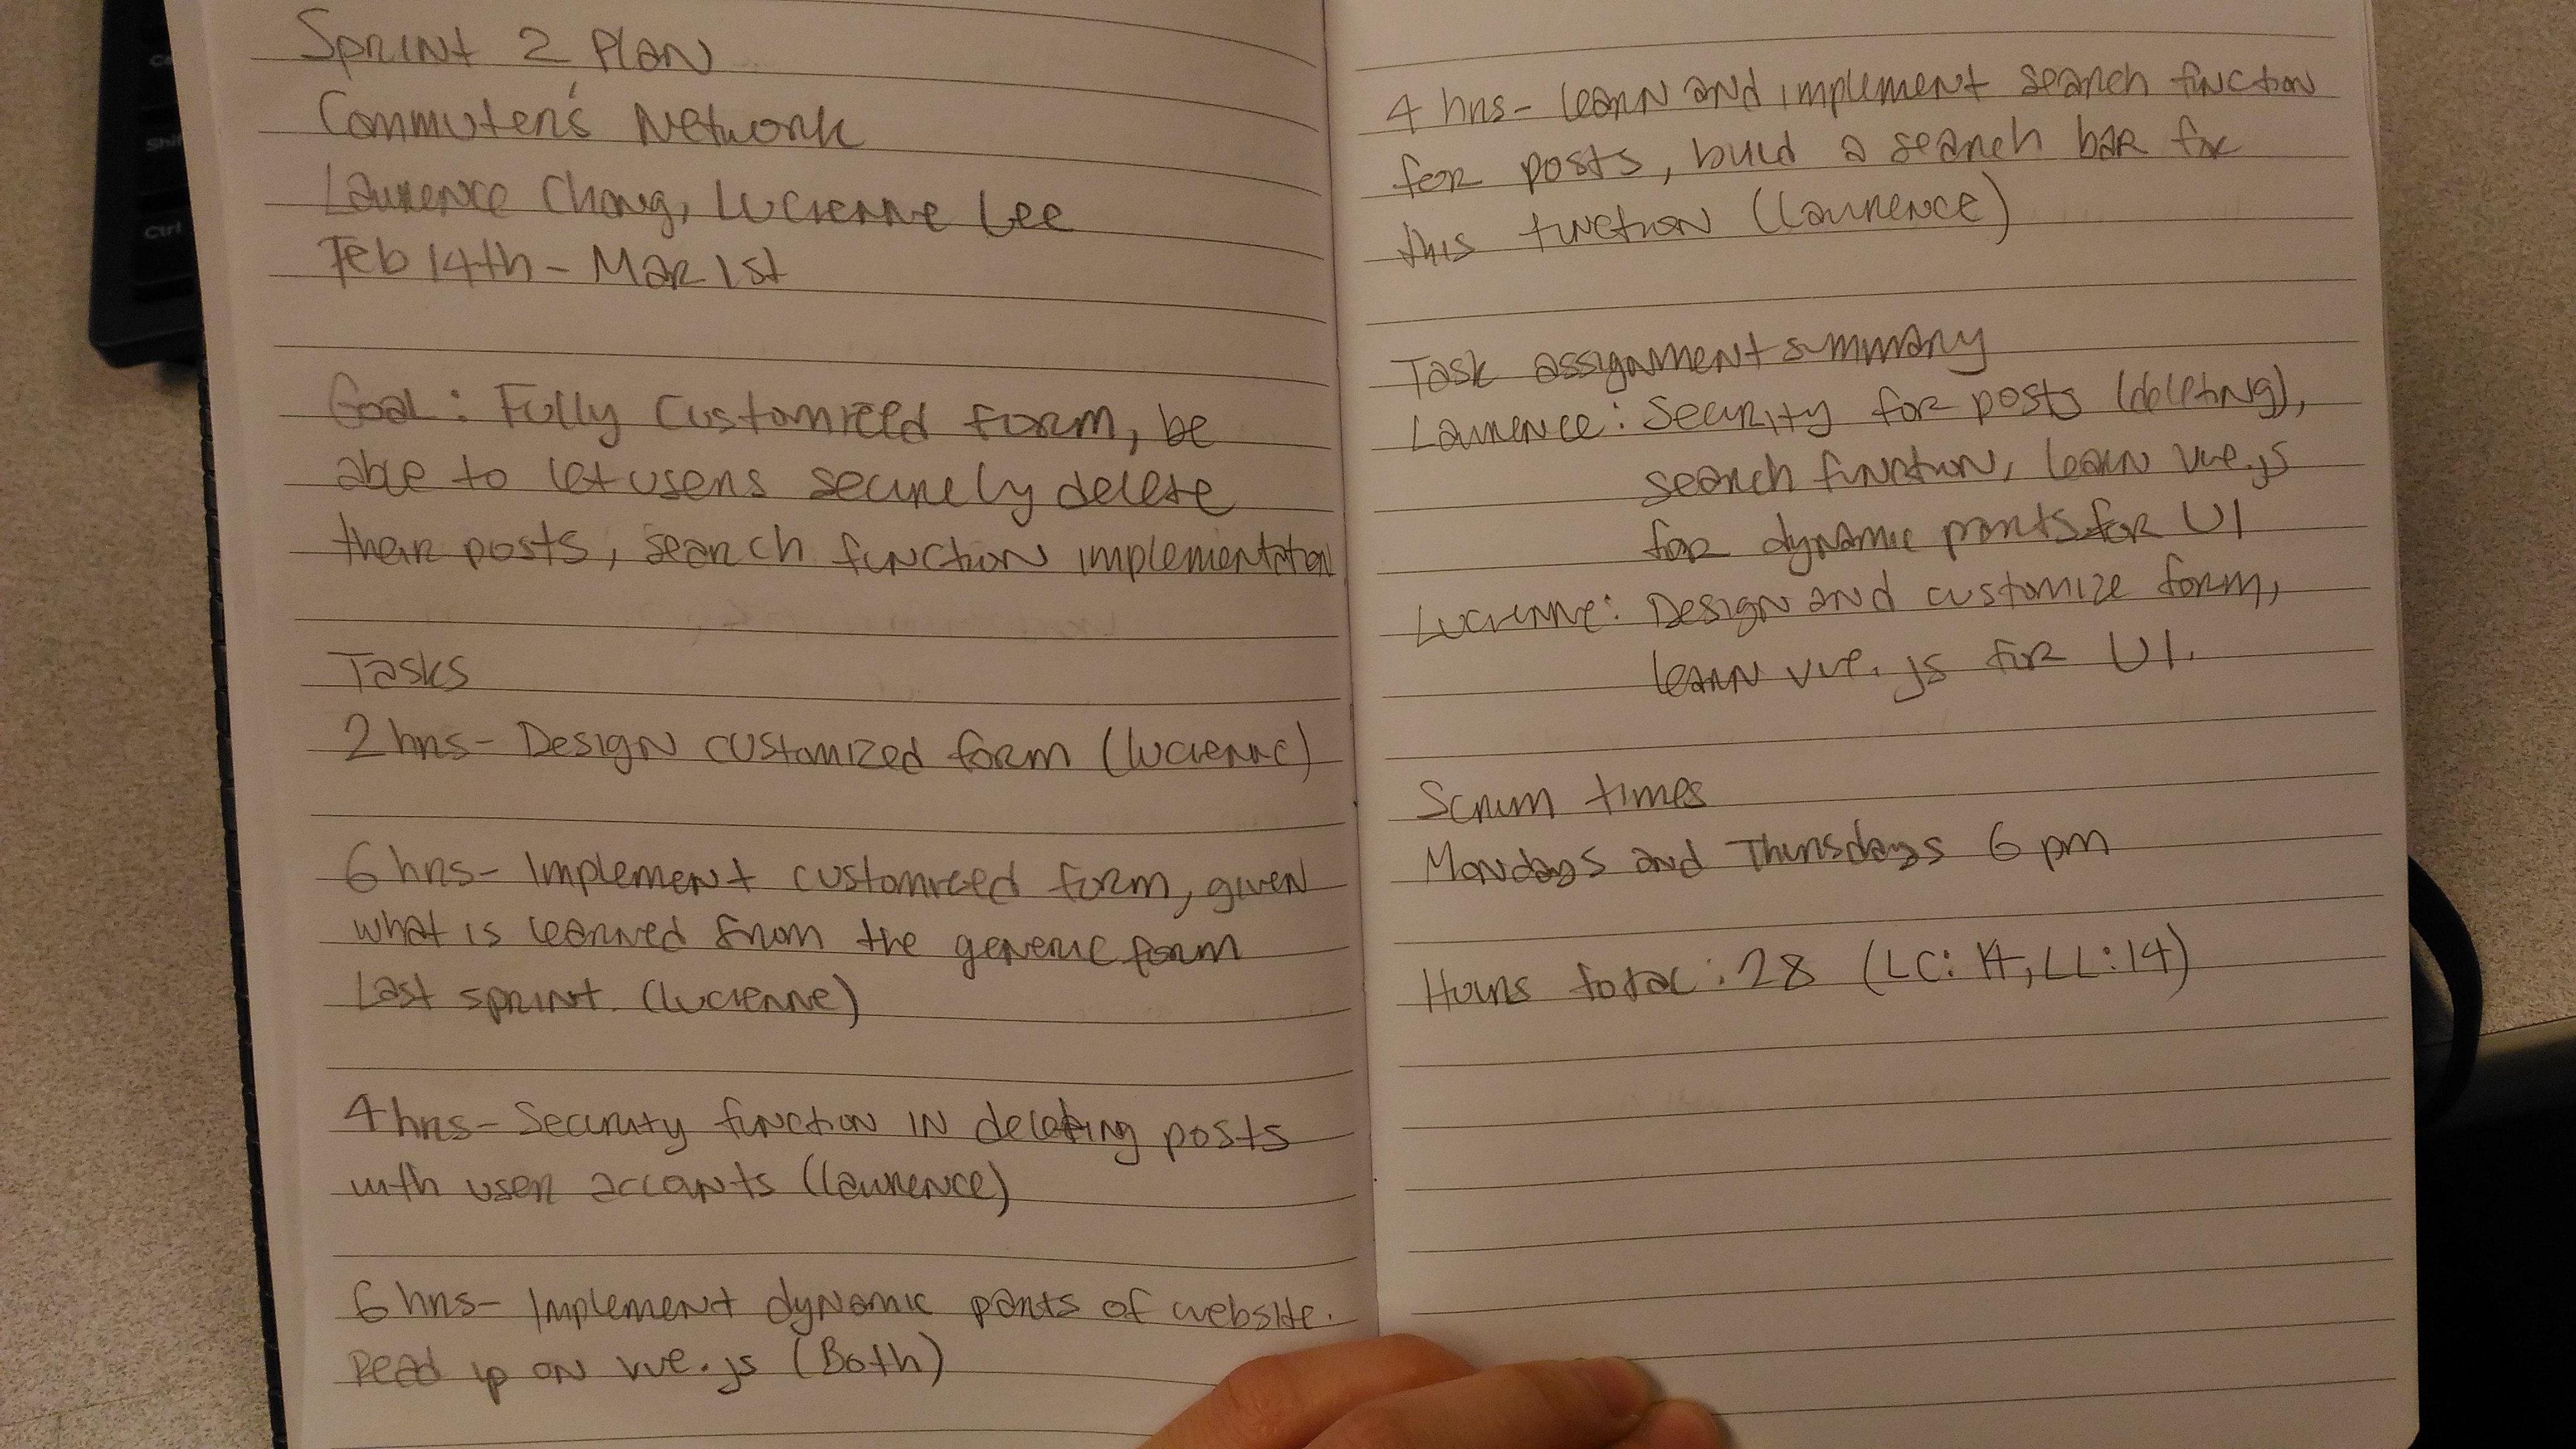 Sprint 2 Plan
Commuter's Network
Laurence Chong, Lucienne Lee
Feb 14th - Mar 1st
Goal: Fully customized form, be
able to let users securely delete
their posts, search function implementation
Tasks
2 hrs - Design customized form (Lucienne)
6 hrs - Implement customized form, given
what is learned from the generic form
last sprint. (Lucienne)
4 hrs - Security function in deleting posts
with user accounts (Laurence)
6 hrs - Implement dynamic parts of website.
Read up on vue.js (Both)
4 hrs - learn and implement search function
for posts, build a search bar for
this function (Laurence)
Task assignment summary
Laurence: Security for posts (deleting),
search function, learn vue.js
for dynamic parts for UI
Lucienne: Design and customize form,
learn vue.js for UI.
Scrum times
Mondays and Thursdays 6 pm
Hours total: 28 (LC: 14, LL: 14)
Ctrl
Shif